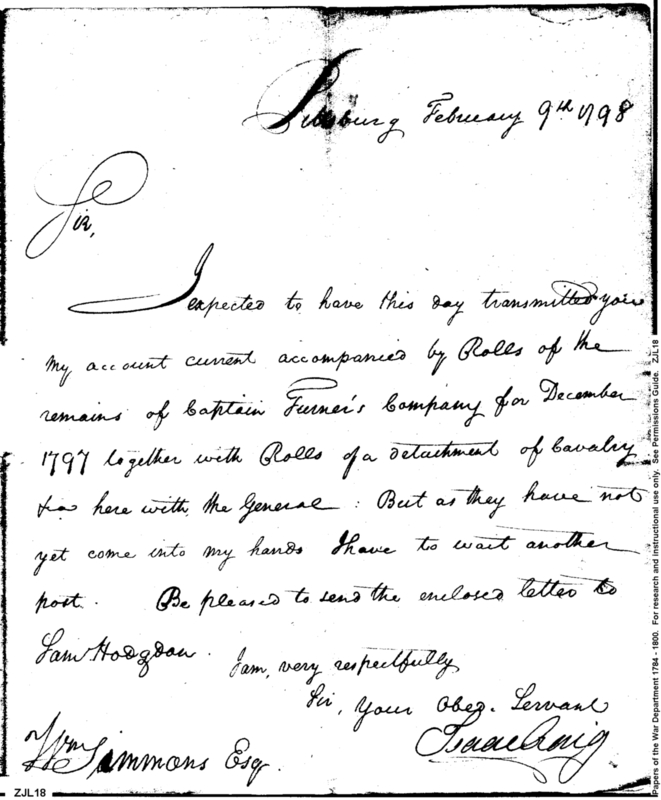 Pittsburg February 9th 1798
Sir,
I expected to have this day transmitted you
my account current accompanied by Rolls of the
remains of Captain Turner's Company for December
1797 together with Rolls of a detachment of Cavalry
&ca here with the General : But as they have not
yet come into my hands I have to wait another
post. Be pleased to send the enclosed letter to
Sam Hodgdon.
I am, very respectfully
Sir, Your Obed. Servant
Isaac Craig
Wm Simmons Esq.
ZJL18
Papers of the War Department 1784 - 1800. For research and instructional use only. See Permissions Guide. ZJL18